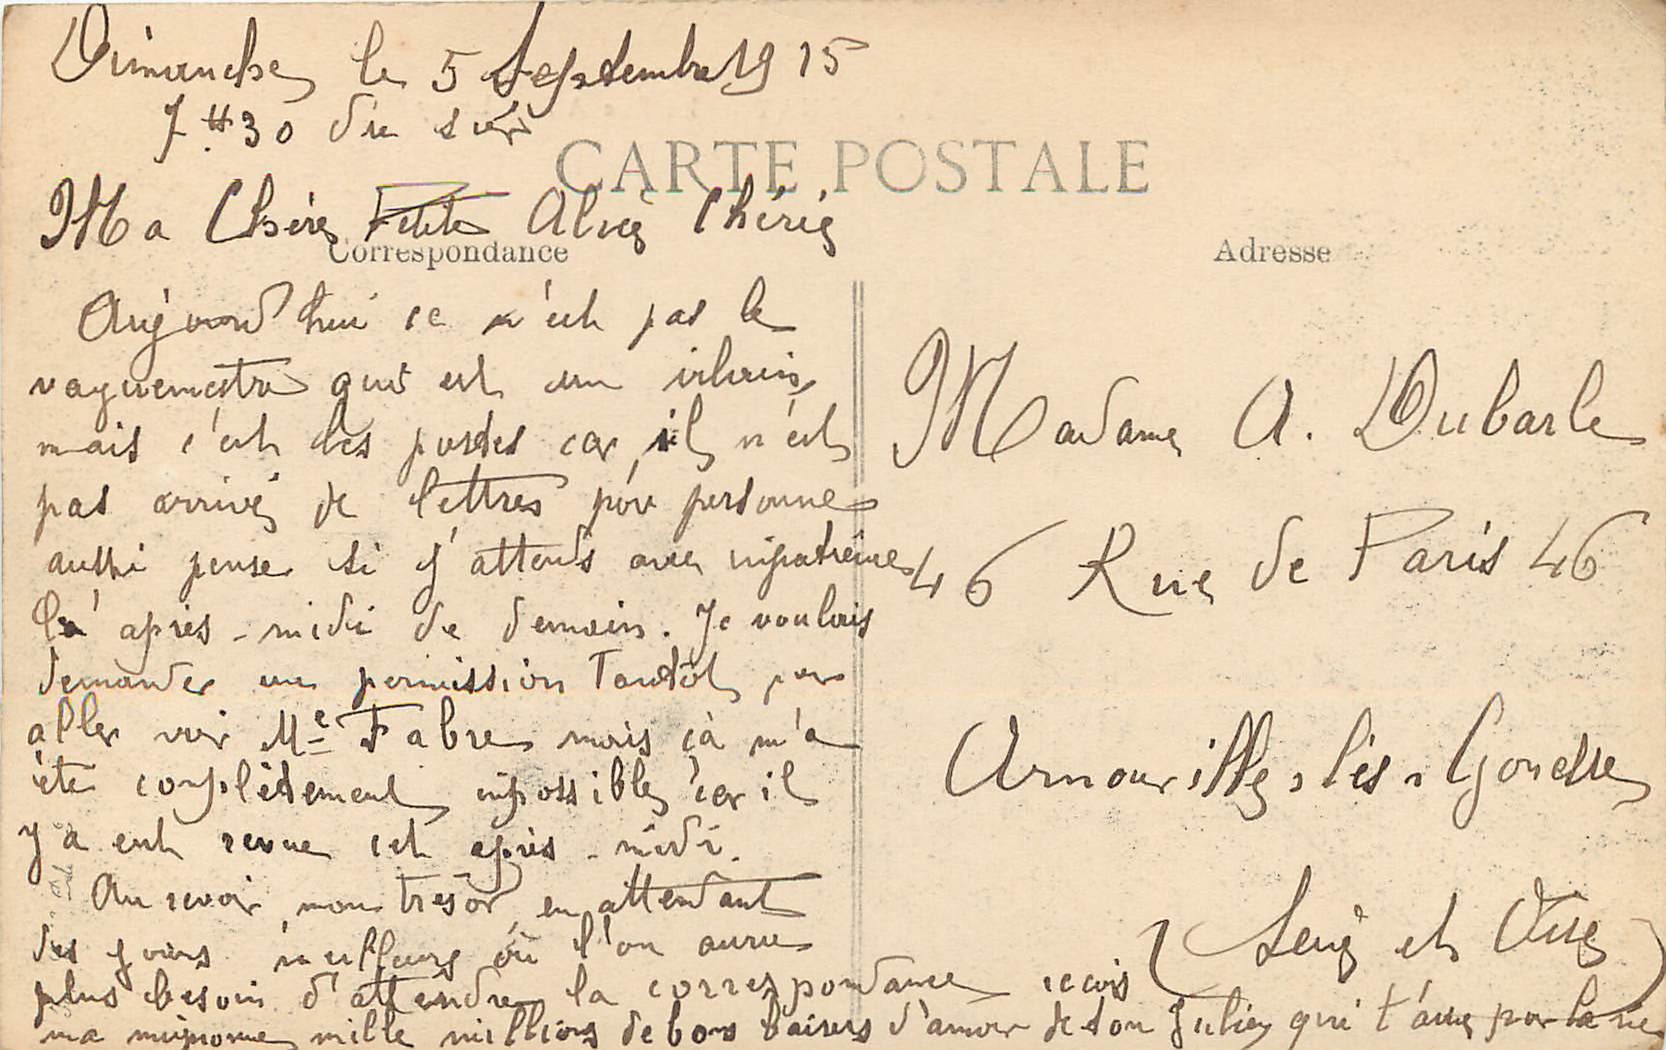 Dimanche le 5 Septembre 1915
7 H 30 du soir
CARTE POSTALE
Ma Chère Petite Alice Chérie
Correspondance
Aujourd'hui ce n'est pas le
vaguemestre qui est un vilain,
mais c'est les postes car il n'est
pas arrivé de lettres pour personne
aussi pense si j'attends avec impatience
l'après-midi de demain. Je voulais
demander une permission Tantôt pour
aller voir Me Fabre mais çà m'a
été complètement impossible car il
y a eut revue cet après-midi.
Au revoir mon trésor en attendant
des jours meilleurs où l'on aura
plus besoin d'attendre la correspondance recois
ma mignonne mille millions de bons baisers d'amour de ton Julien qui t'aime pour la vie
Adresse
Madame A. Dubarle
46 Rue de Paris 46
Arnouville-lès-Gonesse
(Seine et Oise)